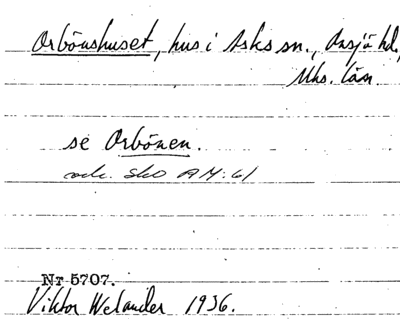 Orbönshuset, hus i Asks sn., Onsjö hd,
Mhs. län.
se Orbönen.
och. Sko AM:61
Nr 5707.
Viktor Welander 1936.